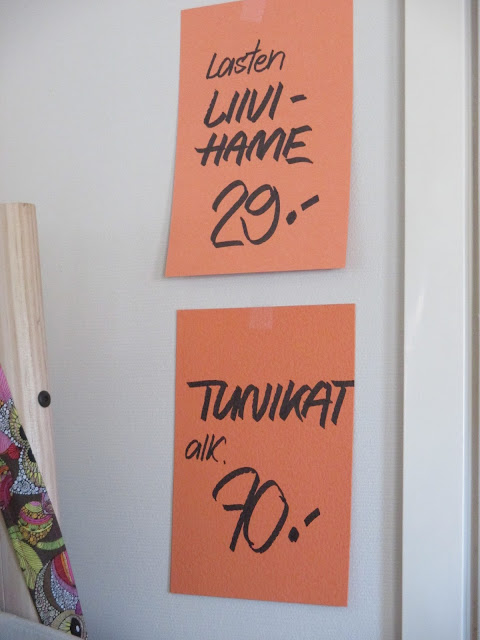 Lasten
LIIVI-
HAME
29.-
TUNIKAT
alk.
70.-